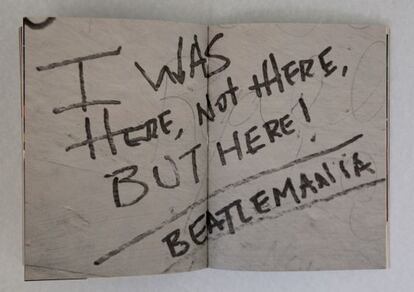 I WAS
HERE, NOT THERE,
BUT HERE!
BEATLEMANIA